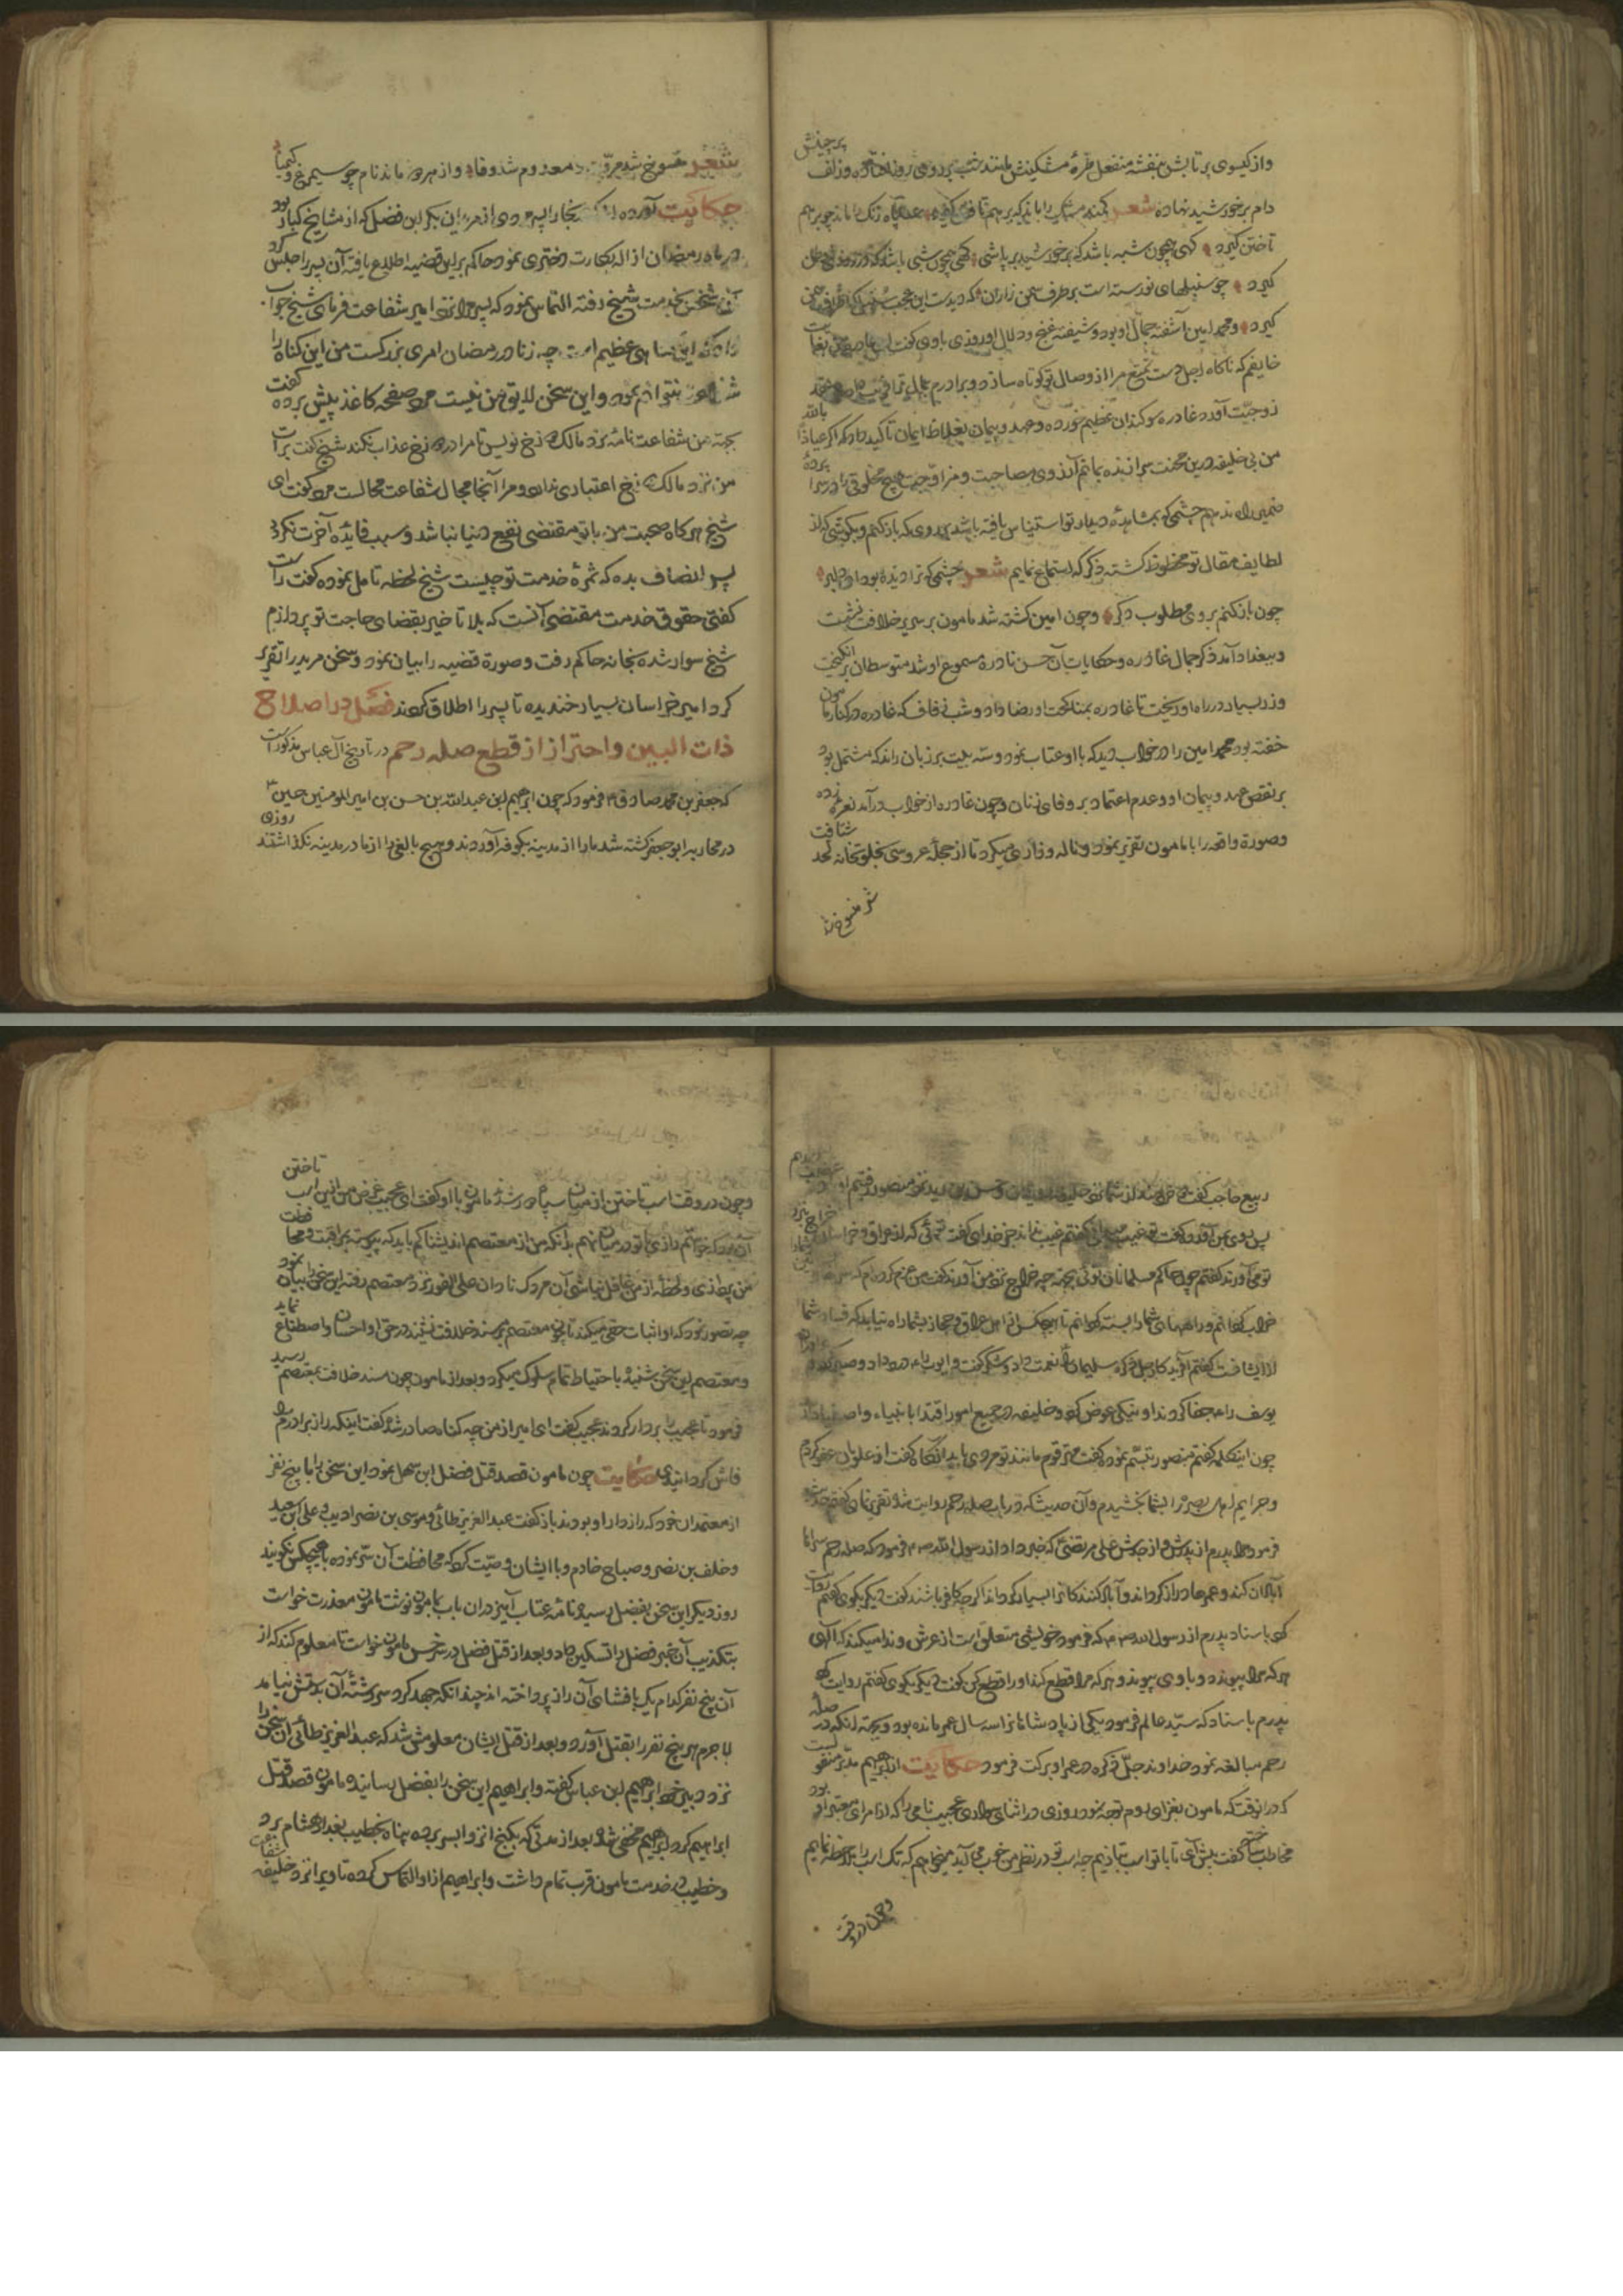 واز کیسوی پرتابش بنفشه منفعل طرهٔ مشکینش مانند شب بر روی روز افتاده وزلف پرچینش
دام بر خورشید نهاده شعر کمند مشکین را باز که برهم تافتن کیرد سپاه زنک را ماند چو بر هم
تاختن کیرد کهی چون شبه باشد که بر خورشید برپاشی کهی چون شبی باشد که
کیرد چو سنبلهای نورسته است بر طرف سمن زاران که دیدست این عجب
کیرد ومحمد امین آشفته جمال او بود وشیفته غنج ودلال او روزی باوی کفت ای
خایفم که ناکاه اجل دست تمتع مرا از وصال تو کوتاه سازد وبرادرم
زوجیت آورد غادره سوکندان عظیم خورده وعهد وپیمان بغلاظ ایمان تاکید داد که اکر عیاذا بالله
من بی خلیفه درین محنت سرا زنده بمانم آرزوی مصاحبت ومزاوجت هیچ مخلوقی را در سرا پردهٔ
ضمیر راه ندهم چشمی که بمشاهدهٔ دیدار تو استیناس یافته باشد بروی که باز کنم وبکوشی که از
لطایف مقال تو محظوظ کشته ذکر که استماع نمایم شعر چشمی که ترا دیده بود ای دلبر
چون باز کنم بروی مطلوب دکر وچون امین کشته شد مامون بر سریر خلافت نشست
وببغداد آمد ذکر جمال غادره وحکایات آن حسن نادره مسموع او شد متوسطان برانکیخت
وزر بسیار در راه او ریخت تا غادره بمناکحت او رضا داد وشب زفاف که غادره در کنار مامون
خفته بود محمد امین را در خواب دید که با او عتاب نمود وسه بیت بر زبان راند که مشتمل بود
بر نقض عهد وپیمان او وعدم اعتماد بر وفای زنان وچون غادره از خواب درآمد نعره زده
وصورة واقعه را با مامون تقریر نمود وناله وزاری میکرد تا از حجلهٔ عروسی بخلوتخانه لحد شتافت
شعر منسوخ شد
شعر منسوخ شد مروّت ومعدوم شد وفا واز هر دو ماند نام چو سیمرغ وکیمیا
حکایت آورده اند که بخارا پسر وی از مریدان بکر ابن فضل که از مشایخ کبار بود
در ماه رمضان ازاله بکارت دختری نمود حاکم بر این قضیه اطلاع یافته آن پسر را حبس کرد
آن شخص بخدمت شیخ رفته التماس نمود که پسر مرا نزد امیر شفاعت فرمای شیخ جواب
داد که این کناهی عظیم است چه زنا در رمضان امری بزرکست من این کناه را
شفاعت نتوانم نمود واین سخن لایق من نیست مرد صفحه کاغذ پیش برده کفت
بجهة من شفاعت نامهٔ نزد مالک دوزخ نویس تا مرا در دوزخ عذاب نکند شیخ کفت برات
من نزد مالک دوزخ اعتباری ندارد ومرا آنجا مجال شفاعت محالست مرد کفت ای
شیخ هرکاه صحبت من با تو مقتضی نفع دنیا نباشد وسبب فایدهٔ آخرت نکردد
پس انصاف بده که ثمرهٔ خدمت تو چیست شیخ لحظه تامل نموده کفت راست
کفتی حقوق خدمت مقتضی آنست که بلا تاخیر بقضای حاجت تو پردازم
شیخ سوار شده بخانه حاکم رفت وصورة قضیه را بیان نمود وسخن مرید را تقریر
کرد امیر خراسان بسیار خندیده تا پسر را اطلاق کردند فصل در اصلاح
ذات البین واحتراز از قطع صله رحم در تاریخ آل عباس مذکور است
که جعفر بن محمد صادق ع فرمود که چون ابرهیم ابن عبدالله بن حسن بن امیر المومنین حسین ع
در محاربه ابو جعفر کشته شد ما را از مدینه بکوفه آوردند وهیچ بالغی را از ما در مدینه نکذاشتند روزی
ربیع حاجب کفت
پس روی بمن آورد وکفت تو غیب میدانی کفتم غیب نداند جز خدای کفت توئی که از عراق وخراسان خراج نزد
تو می آورند کفتم چون حاکم مسلمانان توئی بجهة چه خراج نزد من آورند کفت من عزم کرده ام که
خراب کردانم وراههای شما را بسته کردانم تا هیچکس از اهل عراق وحجاز بشما راه نیابد که فساد شما
کفتم آفریدکار جل ذکره سلیمان را نعمت داد وشکر کفت وایوب را درد داد وصبر کرد
یوسف را جفا کردند او بنیکی عوض کرد وخلیفه در جمیع امور اقتدا بانبیاء واصفیا دارد
چون اینکلمه کفتم منصور تبسّم نموده کفت مهتر قوم مانند تو مردی باید آنکاه کفت از علویان عفو کردم
وجرایم اهل بصره را بشما بخشیدم وآن حدیث که در باب صله رحم روایت شده تقریر نمای کفتم
فرمود مرا پدرم از پدرش واز جدش علی مرتضی که خبر داد از رسول الله ص فرمود که صله رحم سراها
آبادان کند وعمرها دراز کرداند وآباد کنندکانرا بسیار کرداند اکرچه کافر باشند کفت دیکر بکوی کفتم روایت
کرد باسناد پدرم از رسول الله ص که فرمود خویشی متعلق است از عرش وندا میکند که الهی
هر که مرا پیوندد با وی پیوند وهر که مرا قطع کند او را قطع کن کفت دیکر بکوی کفتم روایت کرد
پدرم باسناد که سیّد عالم فرمود یکی از پادشاهانرا سه سال عمر مانده بود وبجهة آنکه در صله
رحم مبالغه نمود خداوند جلّ ذکره در عمر او برکت فرمود حکایت از ابرهیم مدبر منقولست
که در انوقت که مامون بغزای روم توجه نمود روزی در اثنای راه عجیب نامی را که از امرای معتبر او بود
مخاطب ساخته کفت پیش آی تا با تو اسب بتازیم چه اسب تو در نظر من خوب می آید میخواهم که تک اسب را ملاحظه نمایم
وچون در وقت
وچون در وقت اسب تاختن از میان سپاه دور شد مامون با او کفت ای عجیب غرض من ازین اسب تاختن
آن بود که خواستم رازی با تو در میان نهم بدانکه من از معتصم اندیشناکم باید که پیوسته بمراقبت ومحافظت
من پردازی ولحظهٔ از من غافل نباشی آن مردک نادان علی الفور نزد معتصم رفته این سخن را بیان نمود
چه تصور نمود که او اثبات حقی میکند تا چون معتصم بر مسند خلافت نشیند در حق او احسان واصطناع نماید
ومعتصم این سخن شنیده با احتیاط تمام سلوک میکرد وبعد از مامون چون مسند خلافت بمعتصم رسید
فرمود تا عجیب را بر دار کردند عجیب کفت ای امیر از من چه کناه صادر شد کفت اینکه راز برادرم
فاش کردانیدی حکایت چون مامون قصد قتل فضل ابن سهل نمود این سخن را با پنج نفر
از معتمدان خود که رازدار او بودند باز کفت عبد العزیز طائی وموسی بن نصر ادیب وعلی بن سعید
وخلف بن نصر وصباح خادم وبا ایشان وصیّت کرد که محافظت آن سرّ نموده با هیچکس نکویند
روز دیکر این سخن بفضل رسید ونامهٔ عتاب آمیز در ان باب بمامون نوشت مامون معذرت خواست
بتکذیب آن خبر فضل را تسکین داد وبعد از قتل فضل در سرخس مامون خواست تا معلوم کند که از
آن پنج نفر کدام یک بافشای آن راز پرداخته اند چندانکه جهد کرد سر رشتهٔ آن بدستش نیامد
لاجرم هر پنج نفر را بقتل آورد وبعد از قتل ایشان معلومش شد که عبد العزیز طائی آن سخن را
نزد دبیر خود ابراهیم ابن عباس کفته وابراهیم این سخن را بفضل رسانیده مامون قصد قتل
ابراهیم کرد ابراهیم مخفی شد وبعد از مدتی که بکنج انزوا بسر برده پناه بخطیب بغداد هشام برد
وخطیب در خدمت مامون قرب تمام داشت وابراهیم از او التماس کرده تا ویرا نزد خلیفه شفاعت